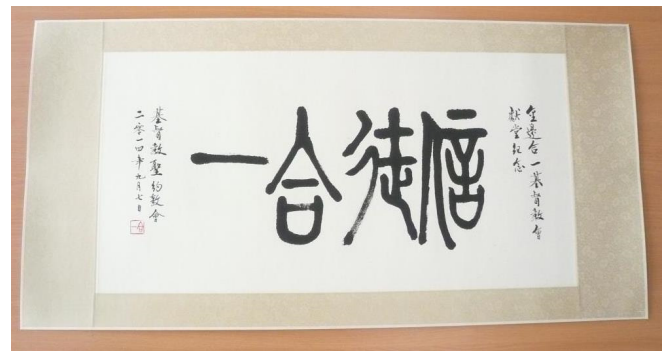 金邊合一基督教會
獻堂紀念
信徒合一
基督教聖約教會
二零一四年九月七日